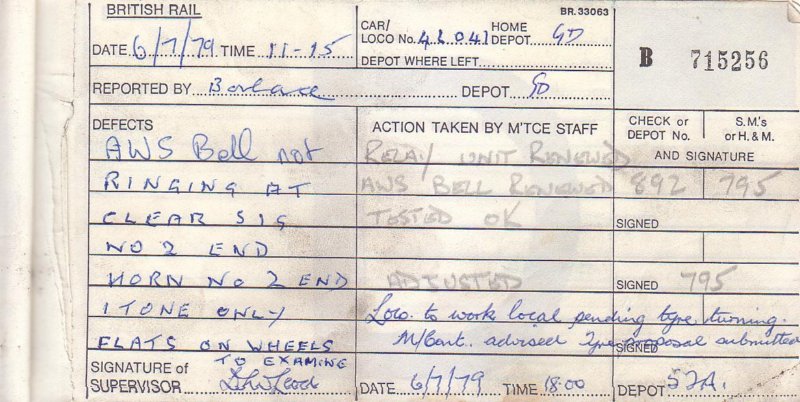 BRITISH RAIL
BR.33063
DATE 6/7/79 TIME 11-15
CAR/ LOCO No. HOME DEPOT GD
DEPOT WHERE LEFT
B 715256
REPORTED BY DEPOT GD
DEFECTS
ACTION TAKEN BY M'TCE STAFF
CHECK or DEPOT No. S.M.'s or H. & M.
AND SIGNATURE
AWS Bell not RELAY UNIT RENEWED
RINGING AT AWS BELL RENEWED 892 795
CLEAR SIG TESTED OK SIGNED
NO 2 END
HORN NO 2 END ADJUSTED SIGNED 795
1 TONE ONLY Loco. to work local pending tyre turning.
FLATS ON WHEELS M/Cont. advised Tyre proposal submitted SIGNED
TO EXAMINE
SIGNATURE of SUPERVISOR
DATE 6/7/79 TIME 18.00 DEPOT 52A.